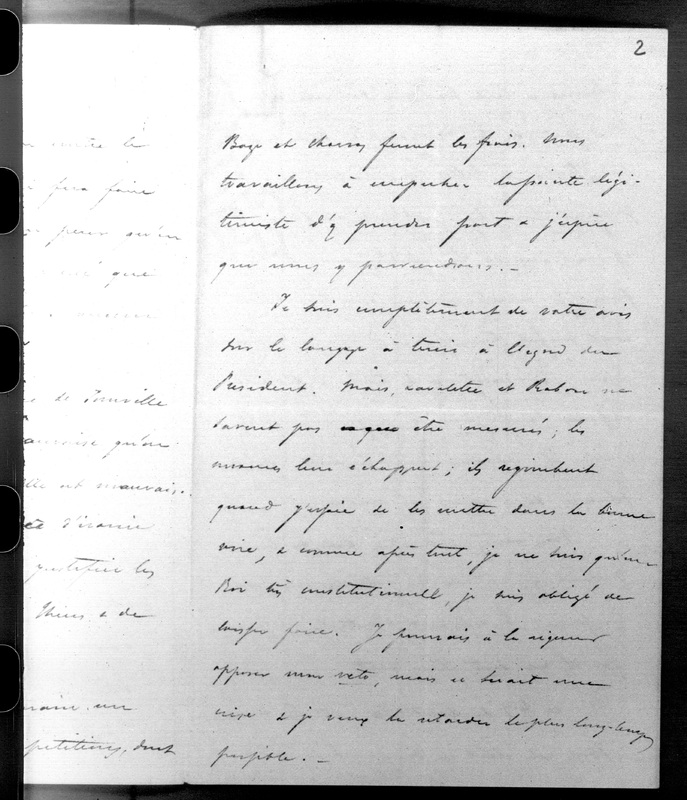 2
Baze et Charras feront les frais. Nous
travaillons à empêcher la pointe légi-
timiste d'y prendre part & j'espère
que nous y parviendrons. —
Je suis complètement de votre avis
sur le langage à tenir à l'égard du
Président. Mais, et ne
savent pas être mesurés; les
nuances leur échappent; ils regimbent
quand j'essaie de les mettre dans la bonne
voie, & comme après tout, je ne suis qu'un
Roi très constitutionnel, je suis obligé de
laisser faire. Je pourrais à la rigueur
opposer mon veto, mais ce serait une
crise & je veux la retarder le plus longtemps
possible. —
contre le
fera faire
peur qu'on
que
de Joinville
qu'on
elle est mauvais
d'ironie
justifier les
Thiers & de
un
pétitions, dont